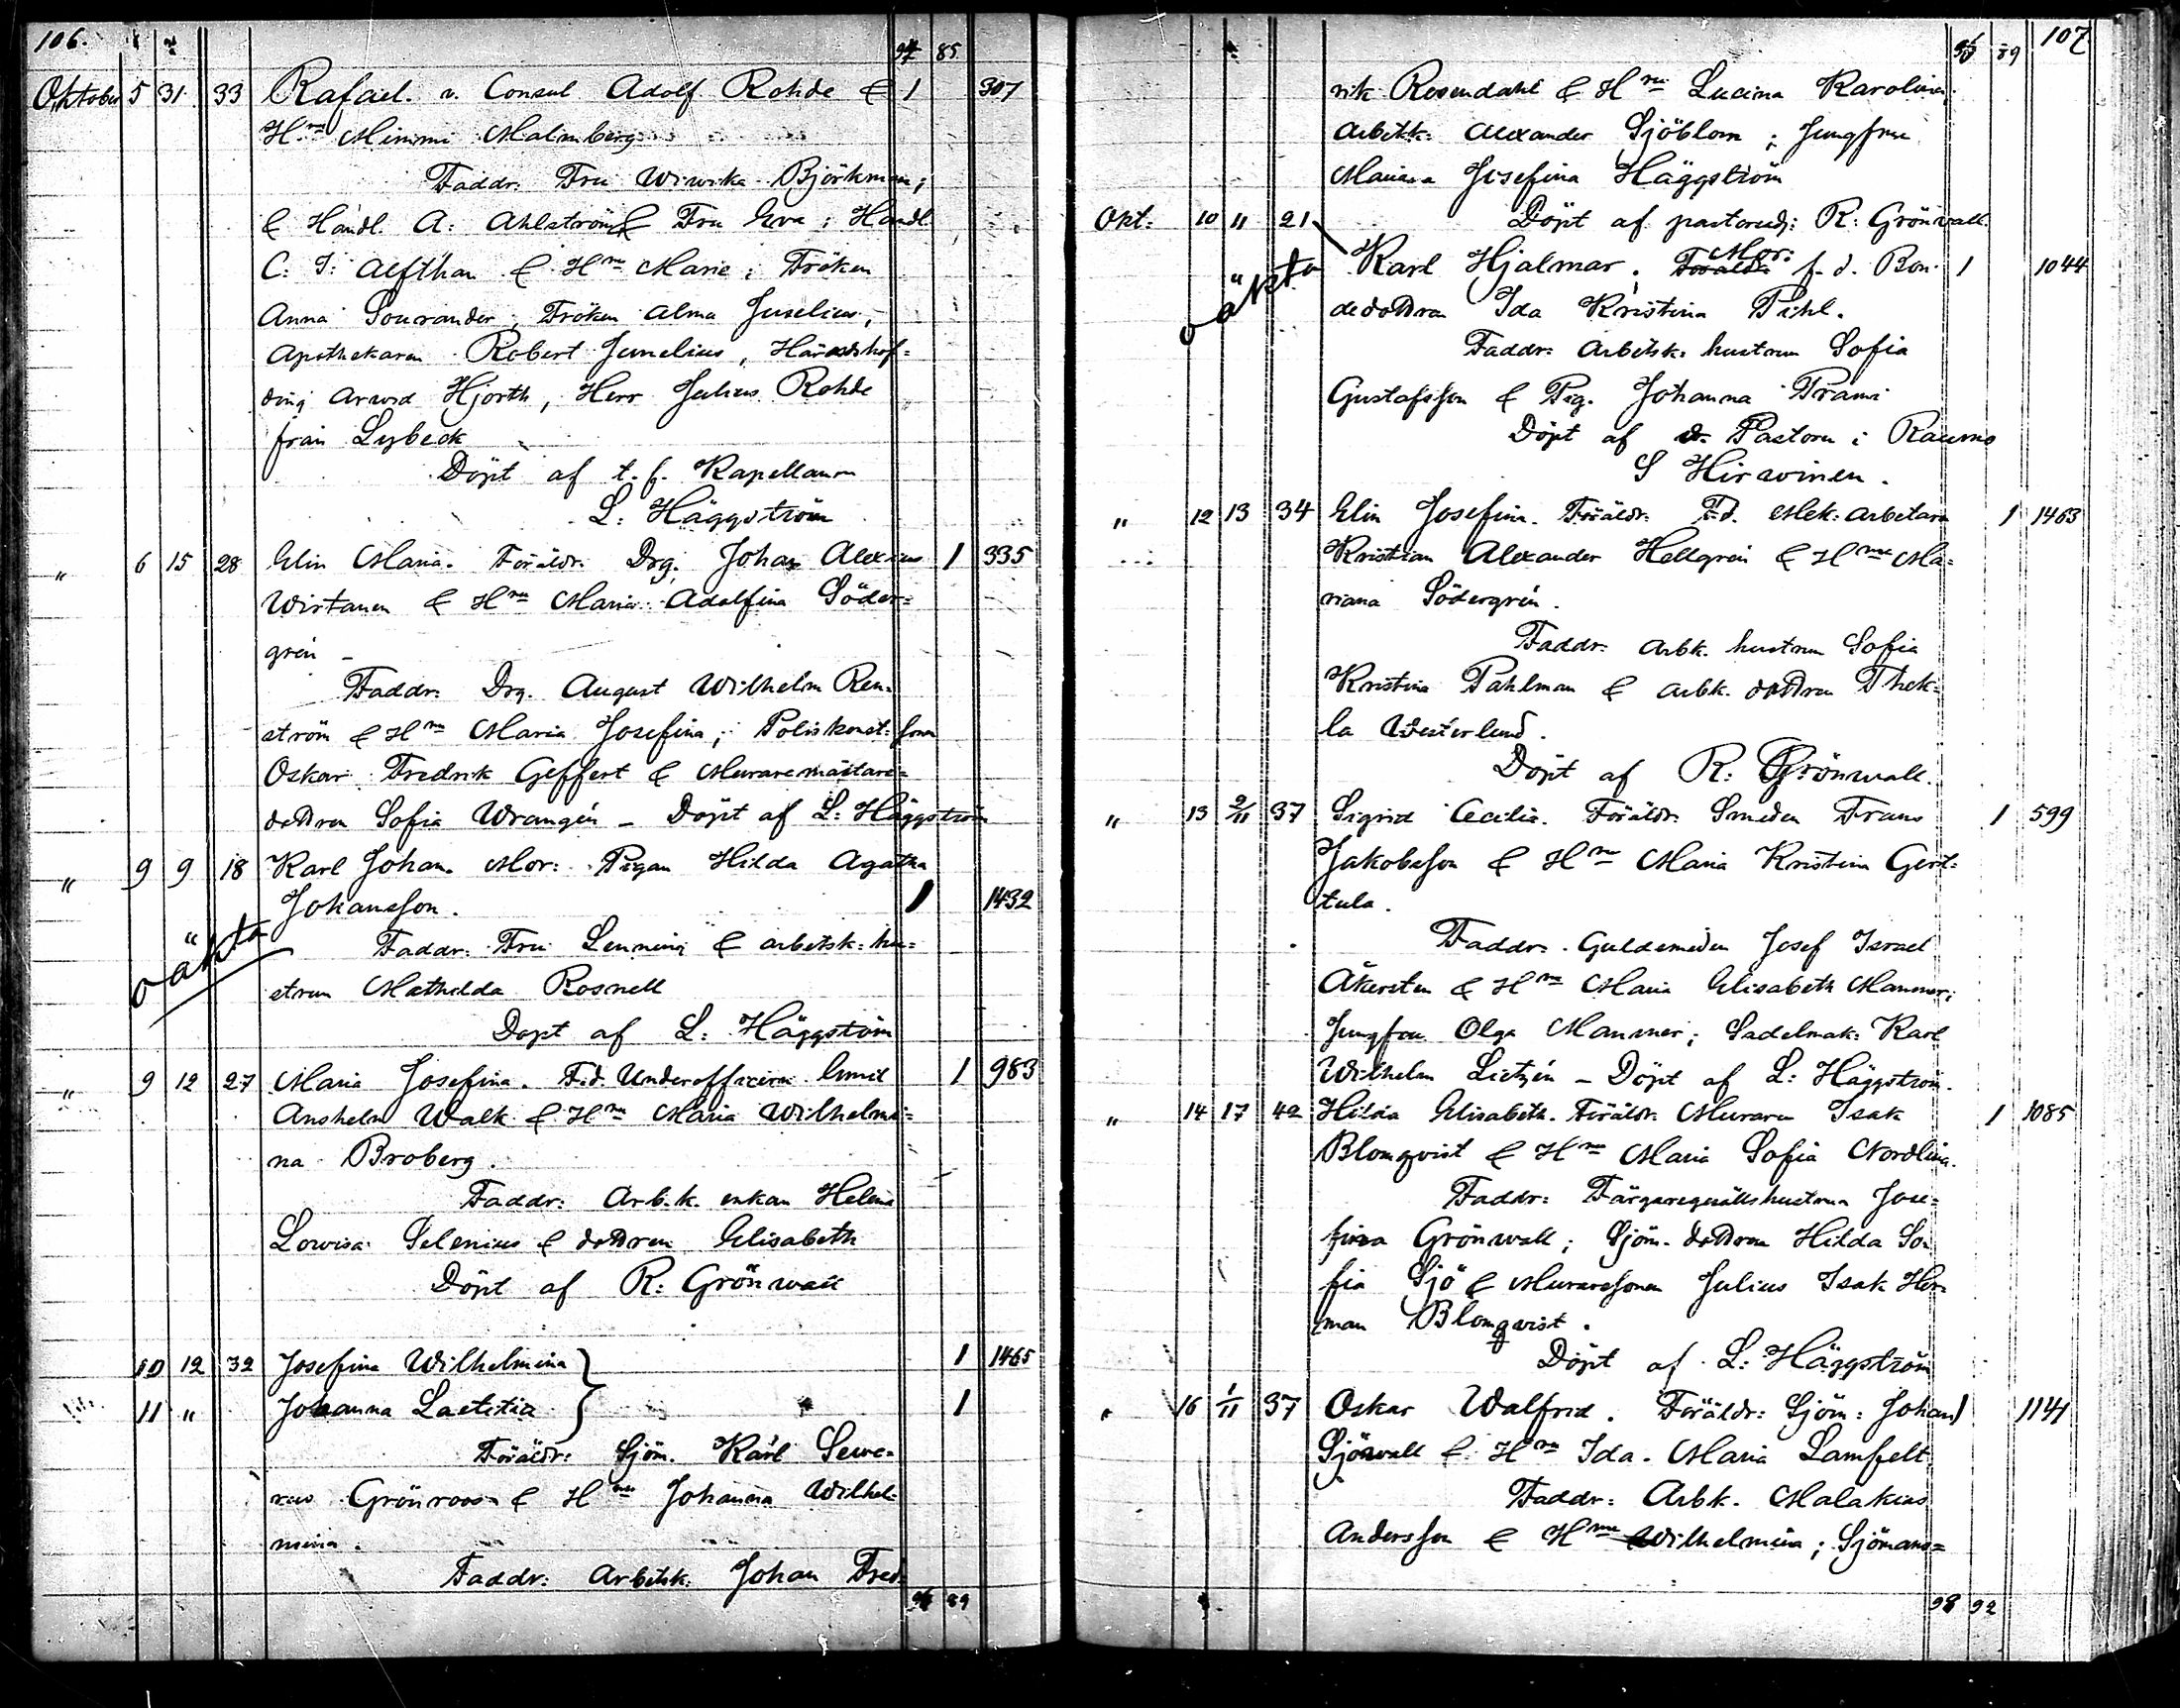 106.
94 85
Oktober 5 31 33 Rafael. v. Consul Adolf Rohde & 1 307
Hru Mimmi Malmberg
Faddr. Fru Wiwika Björkman;
& Handl. A: Ahlström & Fru Eva; Handl.
C: J: Alfthan & Hru Marie; Fröken
Anna Sourander; Fröken Alma Juselius;
Apothekaren Robert Junelius, Häradshöf=
ding Arwid Hjorth, Herr Julius Rohde
från Lybeck
Döpt af t. f. Kapellanen
L: Häggström
" 6 15 28 Elin Maria. Föräldr. Drg. Johan Alexius 1 335
Wirtanen & Hru Maria Adolfina Söder=
grén
Faddr: Drg. August Wilhelm Ren=
ström & Hru Maria Josefina; Poliskonst: sonen
Oskar Fredrik Geffert & Muraremästare=
dottren Sofia Wrangén – Döpt af L: Häggström
" 9 9 18 Karl Johan. Mor: Pigan Hilda Agatha
Johansson. 1 1432
oäkta
Faddr: Fru Lenning & arbetsk: hu=
strun Mathilda Rosnell
Döpt af L: Häggström
" 9 12 27 Maria Josefina. F.d. Underofficern Emil 1 983
Anshelm Walk & Hru Maria Wilhelmi=
na Broberg.
Faddr: Arb.k. enkan Helena
Lovisa Selenius & dottren Elisabeth
Döpt af R: Grönwall
10 12 32 Josefina Wilhelmina 1 1465
11 " Johanna Laetitia 1
Föräldr: Sjöm. Karl Seve=
rus Grönroos & Hru Johanna Wilhel=
mina.
Faddr: Arbetsk. Johan Fred=
96 89
107
96 89
rik Rosendahl & Hru Lucina Karolina;
Arbetk: Alexander Sjöblom; Jungfru
Mariana Josefina Häggström
Okt: 10 11 21 Döpt af pastoradj: R: Grönwall.
oäkta
Karl Hjalmar. Föräldr Mor: f. d. Bon= 1 1044
dedottren Ida Kristina Pihl.
Faddr: Arbetsk: hustrun Sofia
Gustafsson & Pig. Johanna Prami
Döpt af Pastorn i Raumo
S Hirwinen.
" 12 13 34 Elin Josefina. Föräldr. F.d. Mek: arbetaren 1 1463
Kristian Alexander Hellgrén & Hru Ma=
riana Södergrén.
Faddr: Arbk. hustrun Sofia
Kristina Pahlman & arbk. dottren Thek=
la Westerlund.
Döpt af R: Grönwall.
" 13 2/11 37 Sigrid Cecilia. Föräldr: Smeden Frans 1 599
Jakobsson & Hru Maria Kristina Gert=
tula.
Faddr: Guldsmeden Josef Israel
Åkersten & Hru Maria Elisabeth Manner;
Jungfru Olga Manner; Sadelmak: Karl
Wilhelm Lietzén – Döpt af L: Häggström.
" 14 17 42 Hilda Elisabeth. Föräldr. Muraren Isak 1 1085
Blomqvist & Hru Maria Sofia Nordling.
Faddr: Färgaregesällshustrun Jose=
fina Grönwall; Sjöm. dottren Hilda So=
fia Sjö & Muraresonen Julius Isak Her=
man Blomqvist.
Döpt af L: Häggström
" 16 1/11 37 Oskar Walfrid. Föräldr: Sjöm: Johan 1 1141
Sjöwall & Hru Ida Maria Lamfelt
Faddr: Arbk. Malakias
Andersson & Hru Wilhelmina; Sjömans=
98 92